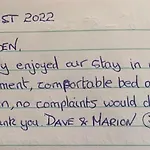 ST 2022
EN.
y enjoyed our stay in
ment, comfortable bed a
n, no complaints would d
ank you DAVE & MARION